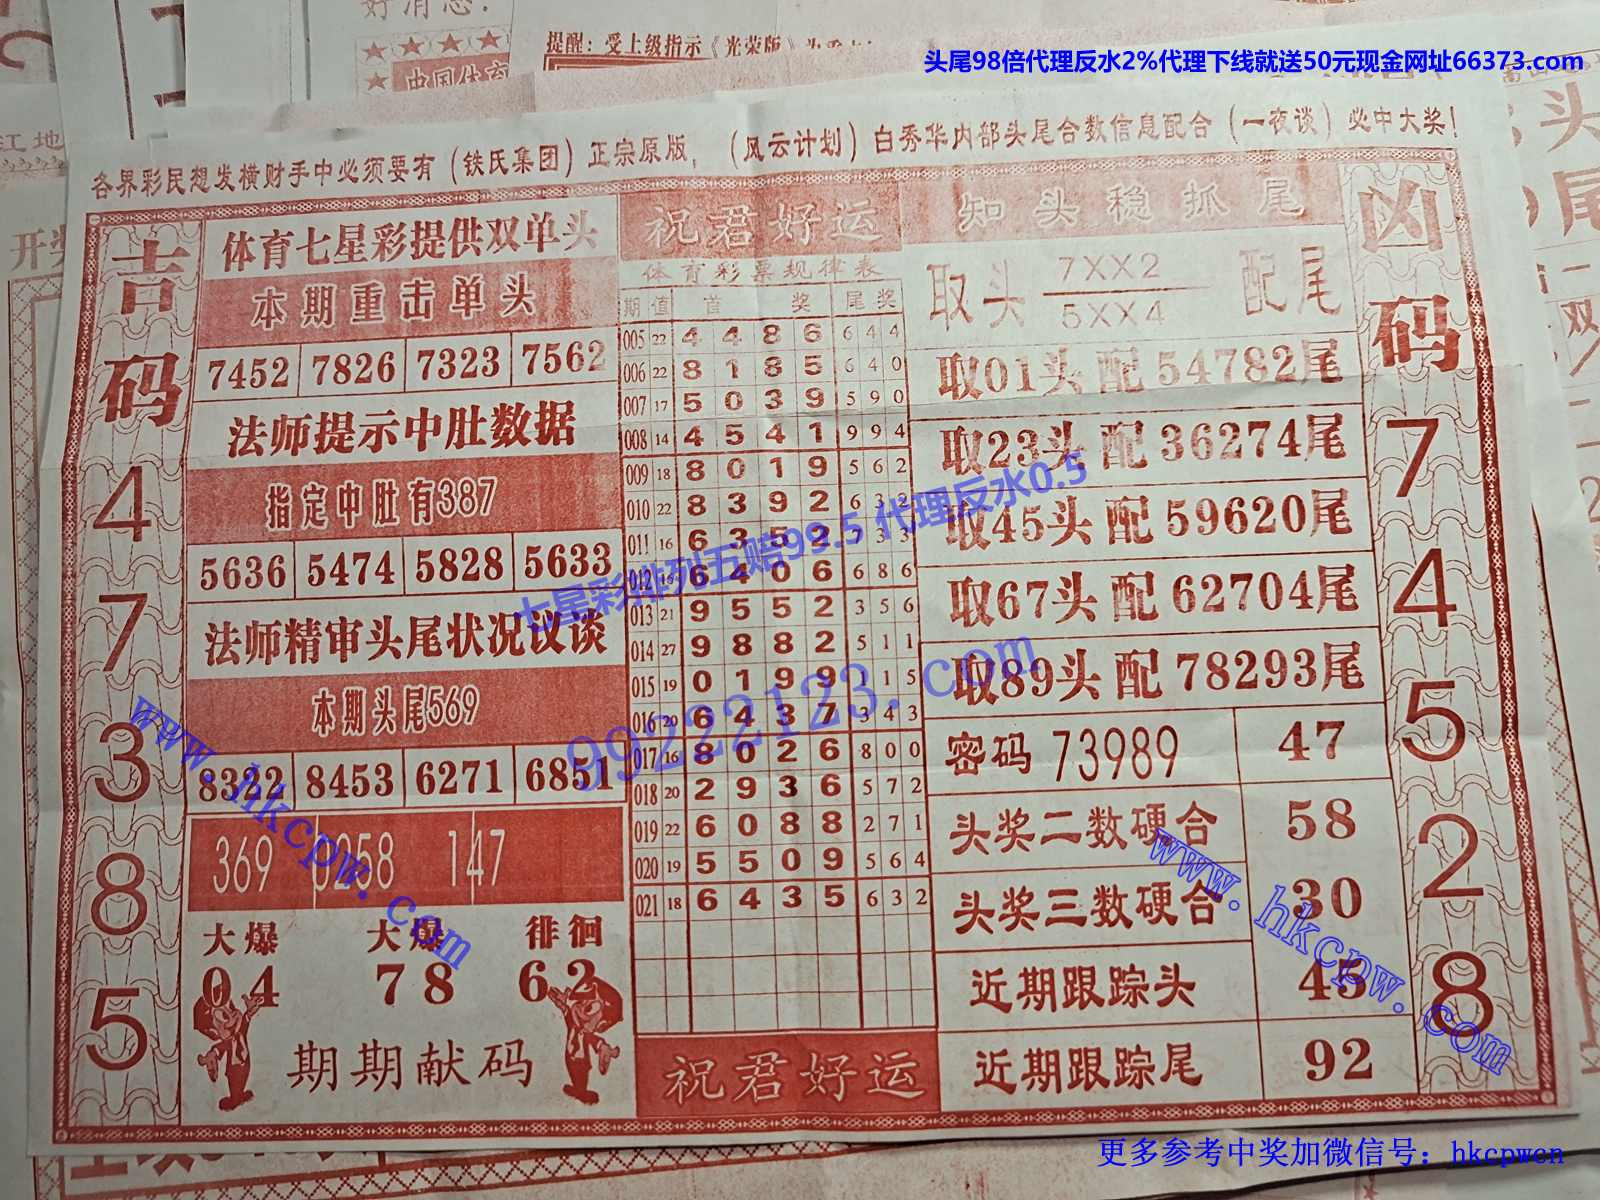 好消息
提醒：受上级指示《光荣版》
中国体育
头尾98倍代理反水2%代理下线就送50元现金网址66373.com
江地
开奖
各界彩民想发横财手中必须要有（铁氏集团）正宗原版，（风云计划）白秀华内部头尾合数信息配合（一夜谈）必中大奖！
吉码
4
7
3
8
5
体育七星彩提供双单头
本期重击单头
7452 7826 7323 7562
法师提示中肚数据
指定中肚有387
5636 5474 5828 5633
法师精审头尾状况议谈
本期头尾569
8322 8453 6271 6851
369 0258 147
大爆 大爆 徘徊
04 78 62
期期献码
祝君好运
体育彩票规律表
期 值 首 奖 尾 奖
005 22 4 4 8 6 6 4 4
006 22 8 1 8 5 6 4 0
007 17 5 0 3 9 5 9 0
008 14 4 5 4 1 9 9 4
009 18 8 0 1 9 5 6 2
010 22 8 3 9 2 6 3 2
011 16 6 3 5 2 7 3 3
012 16 6 4 0 6 6 8 6
013 21 9 5 5 2 3 5 6
014 27 9 8 8 2 5 1 1
015 19 0 1 9 9 1 1 5
016 20 6 4 3 7 3 4 3
017 16 8 0 2 6 8 0 0
018 20 2 9 3 6 5 7 2
019 22 6 0 8 8 2 7 1
020 19 5 5 0 9 5 6 4
021 18 6 4 3 5 6 3 2
祝君好运
知头稳抓尾
取头 7XX2 配尾
5XX4
取01头 配 54782尾
取23头 配 36274尾
取45头 配 59620尾
取67头 配 62704尾
取89头 配 78293尾
密码 73989 47
头奖二数硬合 58
头奖三数硬合 30
近期跟踪头 45
近期跟踪尾 92
凶码
7
4
5
2
8
七星彩排列五赔99.5 代理反水0.5
99222123.com
www.hkcpw.com
www.hkcpw.com
更多参考中奖加微信号：hkcpwcn